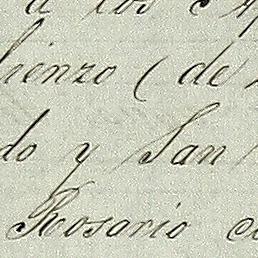 a los
lienzo (de
do y San
Rosario